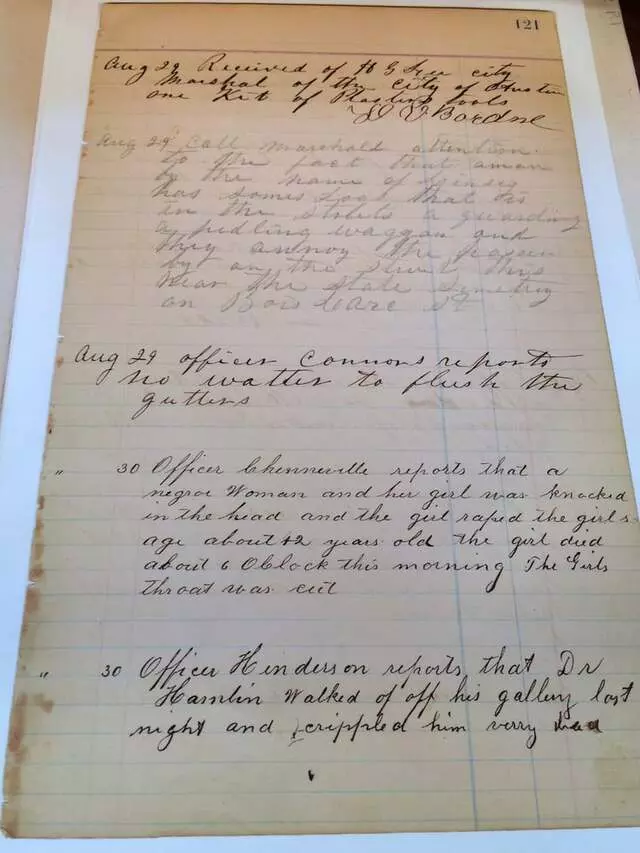 121
Aug 29 Received of H G Lee city
Marshal of the City of Austin
one Kit of Plastiers tools
Aug 29 Call Marshald attention
to the fact that a man
by the name of
has somes Dogs that is
in the streets a guarding
a pedling waggon and
they annoy the passer
by on the Street this
near the State
on Bois Darc St
Aug 29 officer Connors reports
no watter to flush the
gutters
" 30 Officer Chenneville reports that a
negroe Woman and her girl was knocked
in the head and the girl raped the girls
age about 12 years old the girl died
about 6 Oblock this morning The Girls
throat was cut
" 30 Officer Henderson reports that Dr
Hamlin Walked of off his gallery last
night and crippled him verry bad